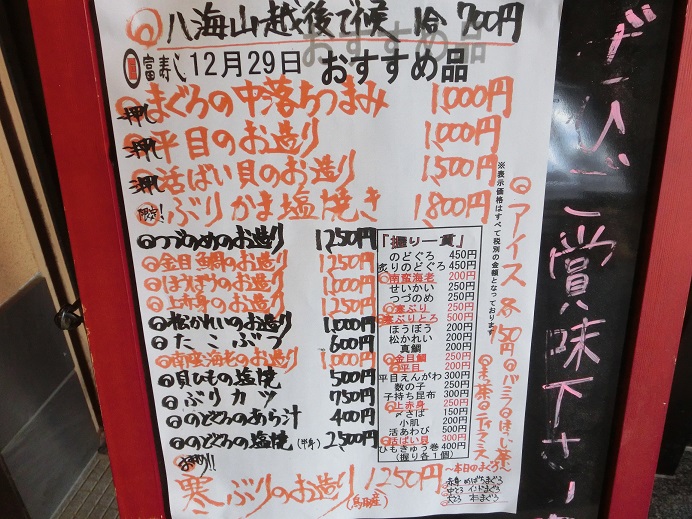 八海山越後で候 1合 700円
おすすめ品
富寿し 12月29日 おすすめ品
押し まぐろの中落ちつまみ 1,000円
押し 平目のお造り 1,000円
押し 活ばい貝のお造り 1,500円
限定! ぶりかま塩焼き 1,800円
つづのめのお造り 1250円
金目鯛のお造り 1,250円
ほうぼうのお造り 1,000円
上赤身のお造り 1,250円
松かれいのお造り 1,000円
たこぶつ 600円
南蛮海老のお造り 1,000円
貝ひもの塩焼 500円
ぶりカツ 750円
のどぐろのあら汁 400円
のどぐろの塩焼(半身) 2,500円
寒ぶりのお造り 1250円
「握り一貫」
のどぐろ 450円
炙りのどぐろ 450円
南蛮海老 200円
せいかい 250円
つづのめ 250円
寒ぶり 250円
寒ぶりとろ 500円
ほうぼう 200円
松かれい 200円
真鯛 200円
金目鯛 250円
平目 200円
平目えんがわ 300円
数の子 250円
子持ち昆布 300円
上赤身 250円
〆さば 150円
小肌 200円
活あわび 500円
活ばい貝 300円
ひもきゅう巻 400円
(握り各1個)
※表示価格はすべて税別の金額となっております
アイス 各150円
バニラ
ほうじ茶
抹茶
ティラミス
〜本日のまぐろ〜
赤身 めばちまぐろ
中とろ インドまぐろ
大とろ 本まぐろ
ぜひご賞味下さい